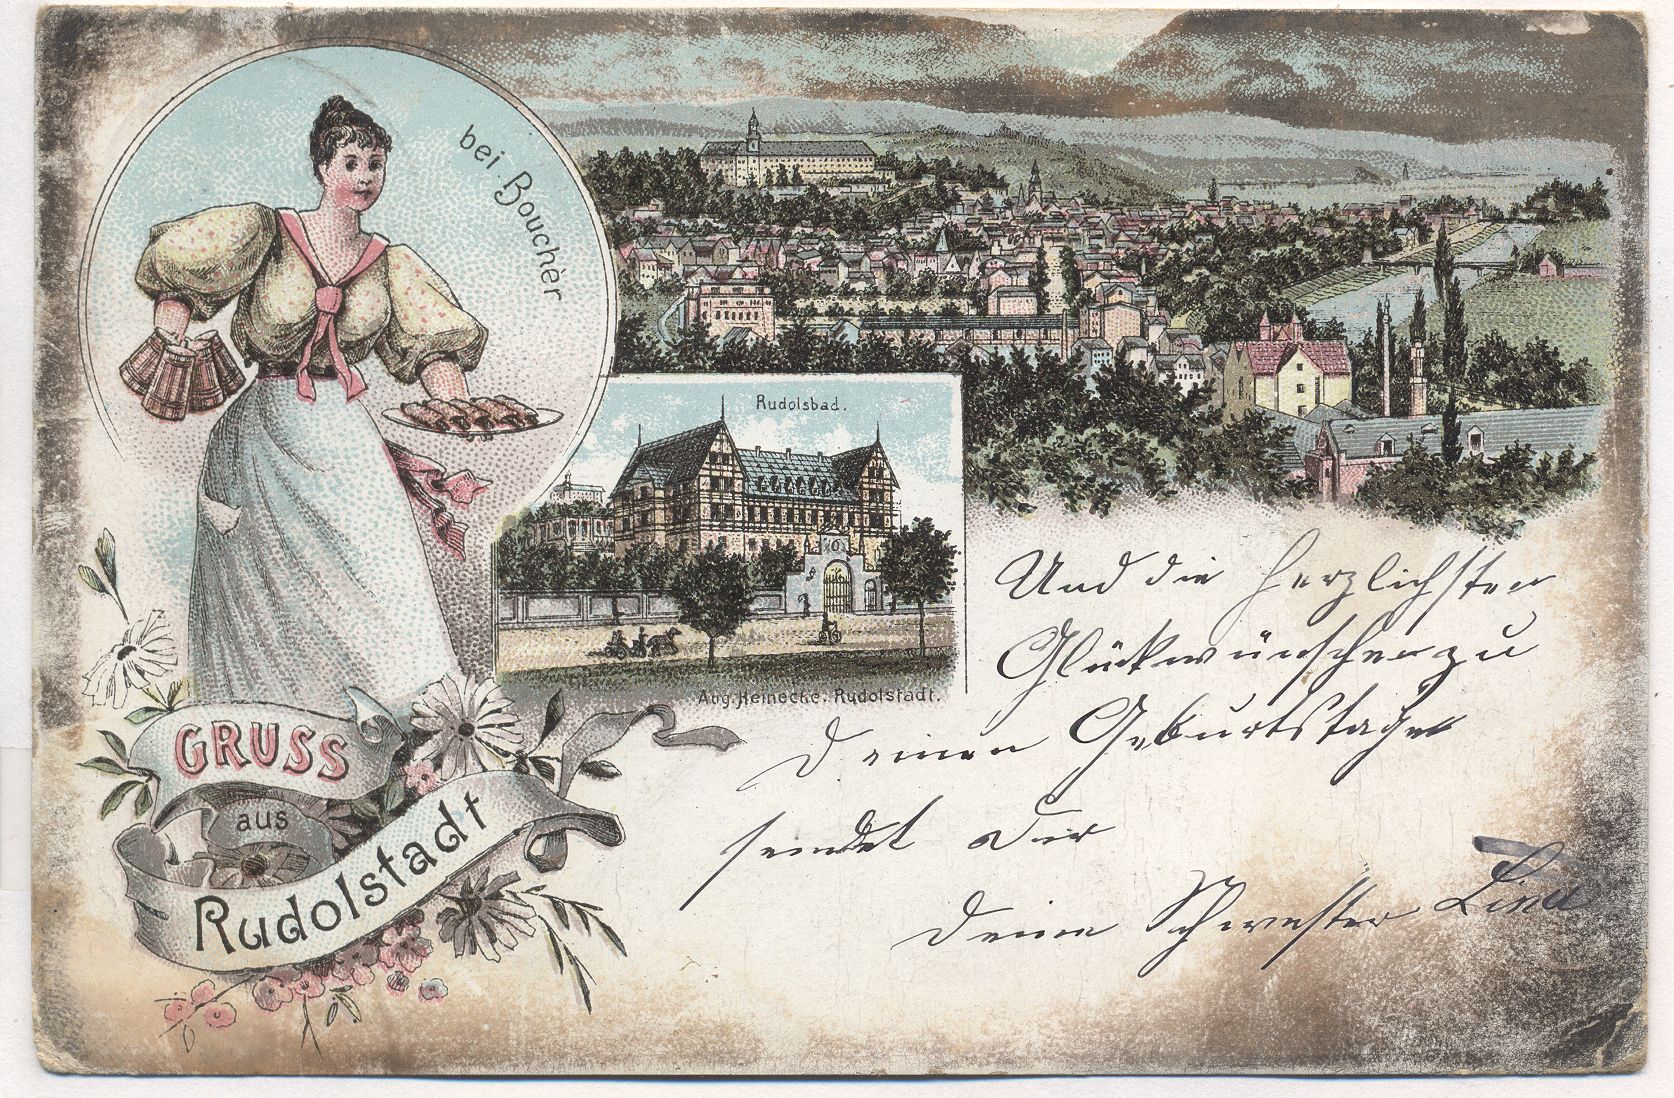 bei Bouchèr
Rudolsbad.
Aug. Heinecke. Rudolstadt.
GRUSS
aus
Rudolstadt
Und die herzlichsten
Glückwünsche zu
Deinem Geburtstage
sendet Dir
Deine Schwester Line